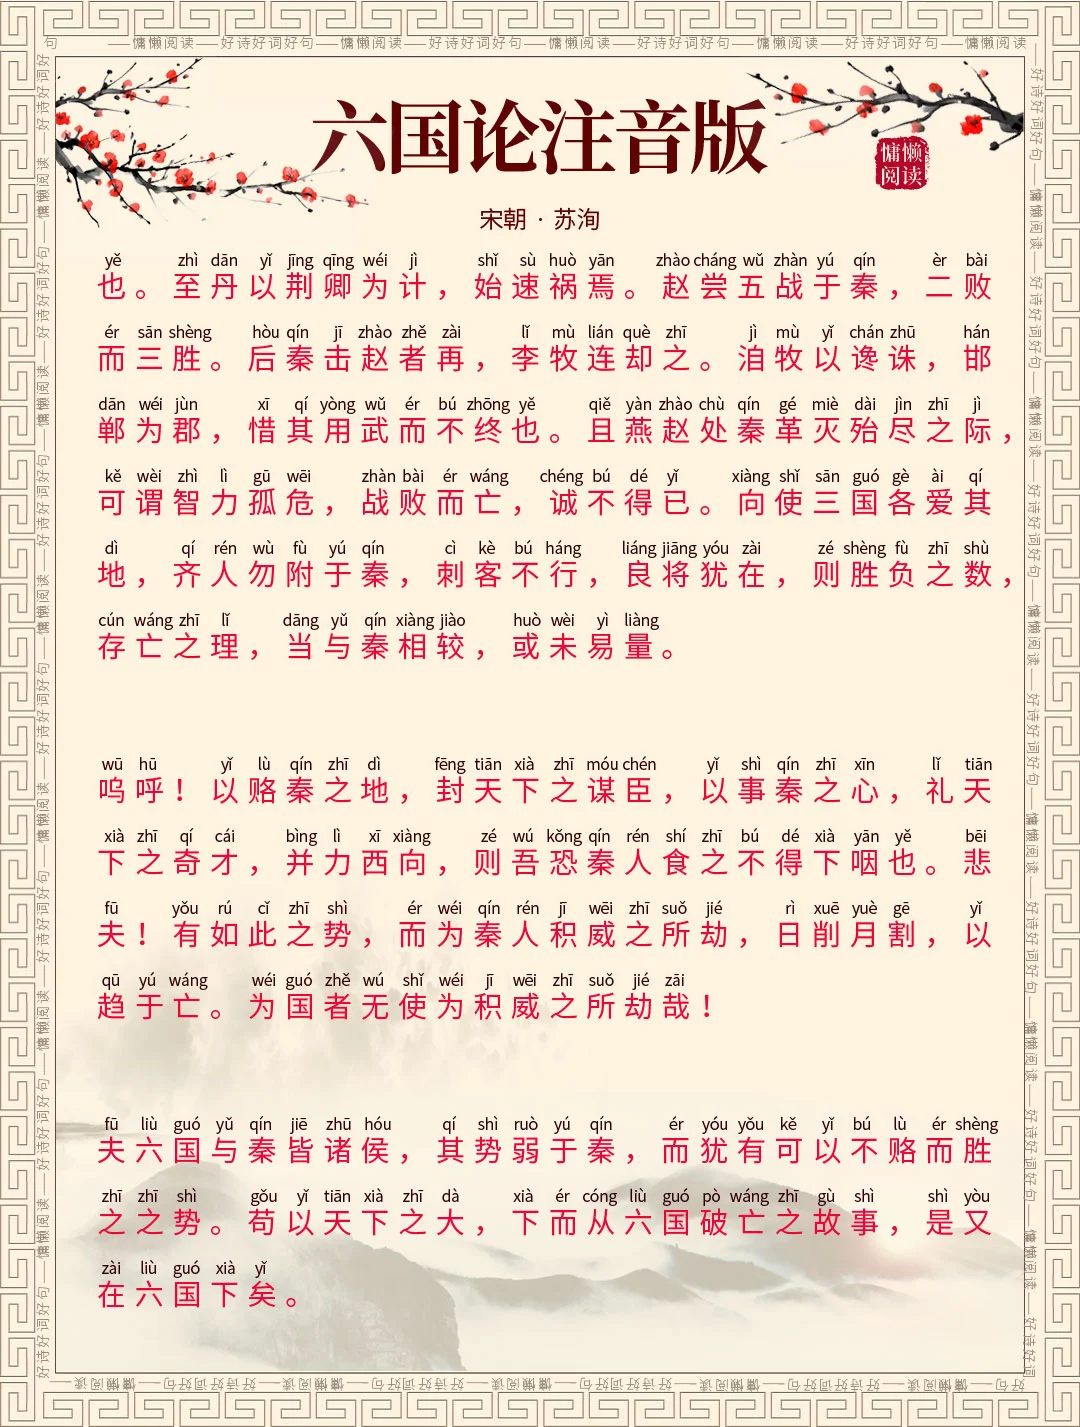 六国论注音版
慵懒
阅读
宋朝 · 苏洵
yě zhì dān yǐ jīng qīng wéi jì shǐ sù huò yān zhào cháng wǔ zhàn yú qín èr bài
也。至丹以荆卿为计，始速祸焉。赵尝五战于秦，二败
ér sān shèng hòu qín jī zhào zhě zài lǐ mù lián què zhī jì mù yǐ chán zhū hán
而三胜。后秦击赵者再，李牧连却之。洎牧以谗诛，邯
dān wéi jùn xī qí yòng wǔ ér bú zhōng yě qiě yàn zhào chù qín gé miè dài jìn zhī jì
郸为郡，惜其用武而不终也。且燕赵处秦革灭殆尽之际，
kě wèi zhì lì gū wēi zhàn bài ér wáng chéng bú dé yǐ xiàng shǐ sān guó gè ài qí
可谓智力孤危，战败而亡，诚不得已。向使三国各爱其
dì qí rén wù fù yú qín cì kè bú háng liáng jiāng yóu zài zé shèng fù zhī shù
地，齐人勿附于秦，刺客不行，良将犹在，则胜负之数，
cún wáng zhī lǐ dāng yǔ qín xiàng jiào huò wèi yì liàng
存亡之理，当与秦相较，或未易量。
wū hū yǐ lù qín zhī dì fēng tiān xià zhī móu chén yǐ shì qín zhī xīn lǐ tiān
呜呼！以赂秦之地，封天下之谋臣，以事秦之心，礼天
xià zhī qí cái bìng lì xī xiàng zé wú kǒng qín rén shí zhī bú dé xià yān yě bēi
下之奇才，并力西向，则吾恐秦人食之不得下咽也。悲
fū yǒu rú cǐ zhī shì ér wéi qín rén jī wēi zhī suǒ jié rì xuē yuè gē yǐ
夫！有如此之势，而为秦人积威之所劫，日削月割，以
qū yú wáng wéi guó zhě wú shǐ wéi jī wēi zhī suǒ jié zāi
趋于亡。为国者无使为积威之所劫哉！
fū liù guó yǔ qín jiē zhū hóu qí shì ruò yú qín ér yóu yǒu kě yǐ bú lù ér shèng
夫六国与秦皆诸侯，其势弱于秦，而犹有可以不赂而胜
zhī zhī shì gǒu yǐ tiān xià zhī dà xià ér cóng liù guó pò wáng zhī gù shì shì yòu
之之势。苟以天下之大，下而从六国破亡之故事，是又
zài liù guó xià yǐ
在六国下矣。
句 ——慵懒阅读——好诗好词好句——慵懒阅读——好诗好词好句——慵懒阅读——好诗好词好句——慵懒阅读——好诗好词好句——慵懒阅读